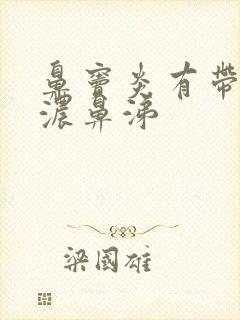 鼻窦炎有带
浓鼻涕
梁国雄